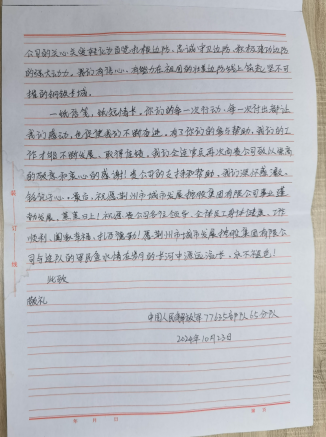 公司的关心关爱转化为自觉扎根边防、忠诚守卫边防、积极建功边防
的强大动力。我们有信心、有能力在祖国的边防线上筑起坚不可
摧的钢铁长城。
一纸薄笔，纸短情长。你们的每一次行动、每一次付出都让
我们感动，也促使我们不断奋进，有了你们的帮助，我们的工
作才能不断发展、取得佳绩，我们全连官兵再次向贵公司致以崇高
的敬意和衷心的感谢！贵公司的支持和帮助，我们深怀感激，
铭记于心。最后，祝愿荆州市城市发展控股集团有限公司事业蓬
勃发展，蒸蒸日上！祝愿贵公司各位领导、全体员工身体健康、工作
顺利、阖家幸福、扎西德勒！愿荆州市城市发展控股集团有限公
司与连队的军民鱼水情在岁月的长河中源远流长，永不褪色！
此致
敬礼
中国人民解放军77635部队65分队
2024年10月23日
装 订 线
年 月 日
第 页